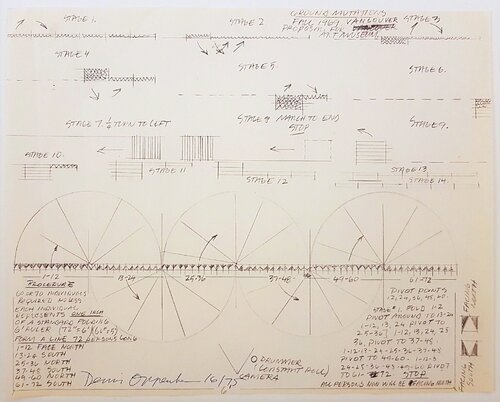 GROUND MUTATIONS
FALL 1969 VANCOUVER
PROPOSAL FOR
ART MUSEUM
STAGE 1.
STAGE 2
STAGE 3
STAGE 4
STAGE 5.
STAGE 6.
STAGE 7. 1/4 TURN TO LEFT
STAGE 8 MARCH TO END
STOP
STAGE 9.
STAGE 10.
STAGE 11
STAGE 12
STAGE 13
STAGE 14.
1-12
13-24
25-36
37-48
49-60
61-72
PROCEDURE
60 INDIVIDUALS
REQUIRED
EACH INDIVIDUAL
REPRESENTS ONE INCH
OF A STANDARD FOLDING
6' RULER (72"=6')
FORM A LINE 72 PERSONS LONG
1-12 FACE NORTH
13-24 SOUTH
25-36 NORTH
37-48 SOUTH
49-60 NORTH
61-72 SOUTH
Dennis Oppenheim 16/75
DRUMMER
(CONSTANT ROLL)
CAMERA
PIVOT POINTS
12, 24, 36, 48, 60.
STAGE #1. FOLD 1-12
PIVOT AROUND TO 13-24
1-12, 13, 24 PIVOT TO
25-36. 1-12, 13, 24, 25
36, PIVOT TO 37-48
1-12-13-24-25-36-37-48
PIVOT TO 49-60. 1-12-13
24-25-36-48-49-60 PIVOT
TO 61-72 STOP
ALL PERSONS NOW WILL BE FACING NORTH
FACING NORTH
FACING SOUTH